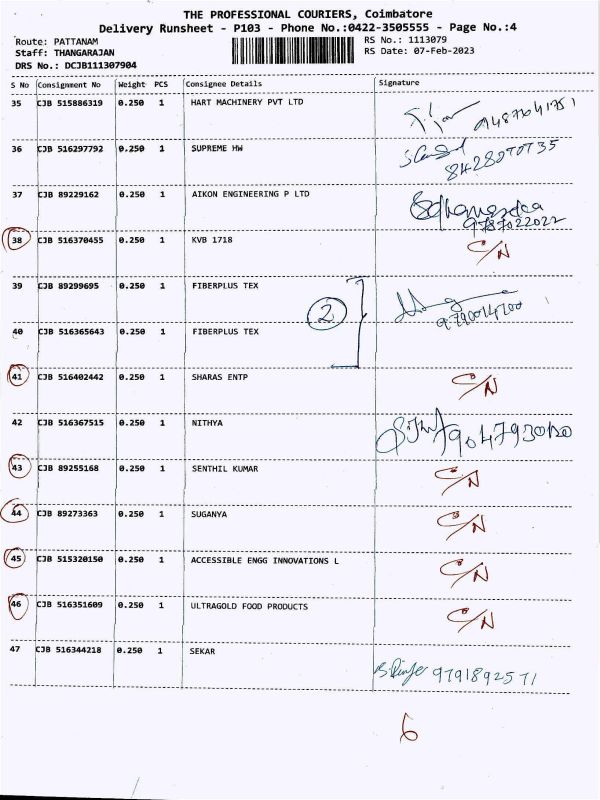 THE PROFESSIONAL COURIERS, Coimbatore
Delivery Runsheet - P103 - Phone No.:0422-3505555 - Page No.:4
Route: PATTANAM
RS No.: 1113079
Staff: THANGARAJAN
RS Date: 07-Feb-2023
DRS No.: DCJB111307904
S No Consignment No Weight PCS Consignee Details Signature
35 CJB 515886319 0.250 1 HART MACHINERY PVT LTD
36 CJB 516297792 0.250 1 SUPREME HW
37 CJB 89229162 0.250 1 AIKON ENGINEERING P LTD
9787022022
38 CJB 516370455 0.250 1 KVB 1718 C/N
39 CJB 89299695 0.250 1 FIBERPLUS TEX
2
40 CJB 516365643 0.250 1 FIBERPLUS TEX
41 CJB 516402442 0.250 1 SHARAS ENTP C/N
42 CJB 516367515 0.250 1 NITHYA
43 CJB 89255168 0.250 1 SENTHIL KUMAR C/N
44 CJB 89273363 0.250 1 SUGANYA C/N
45 CJB 515320150 0.250 1 ACCESSIBLE ENGG INNOVATIONS L C/N
46 CJB 516351609 0.250 1 ULTRAGOLD FOOD PRODUCTS C/N
47 CJB 516344218 0.250 1 SEKAR 9791892571
6